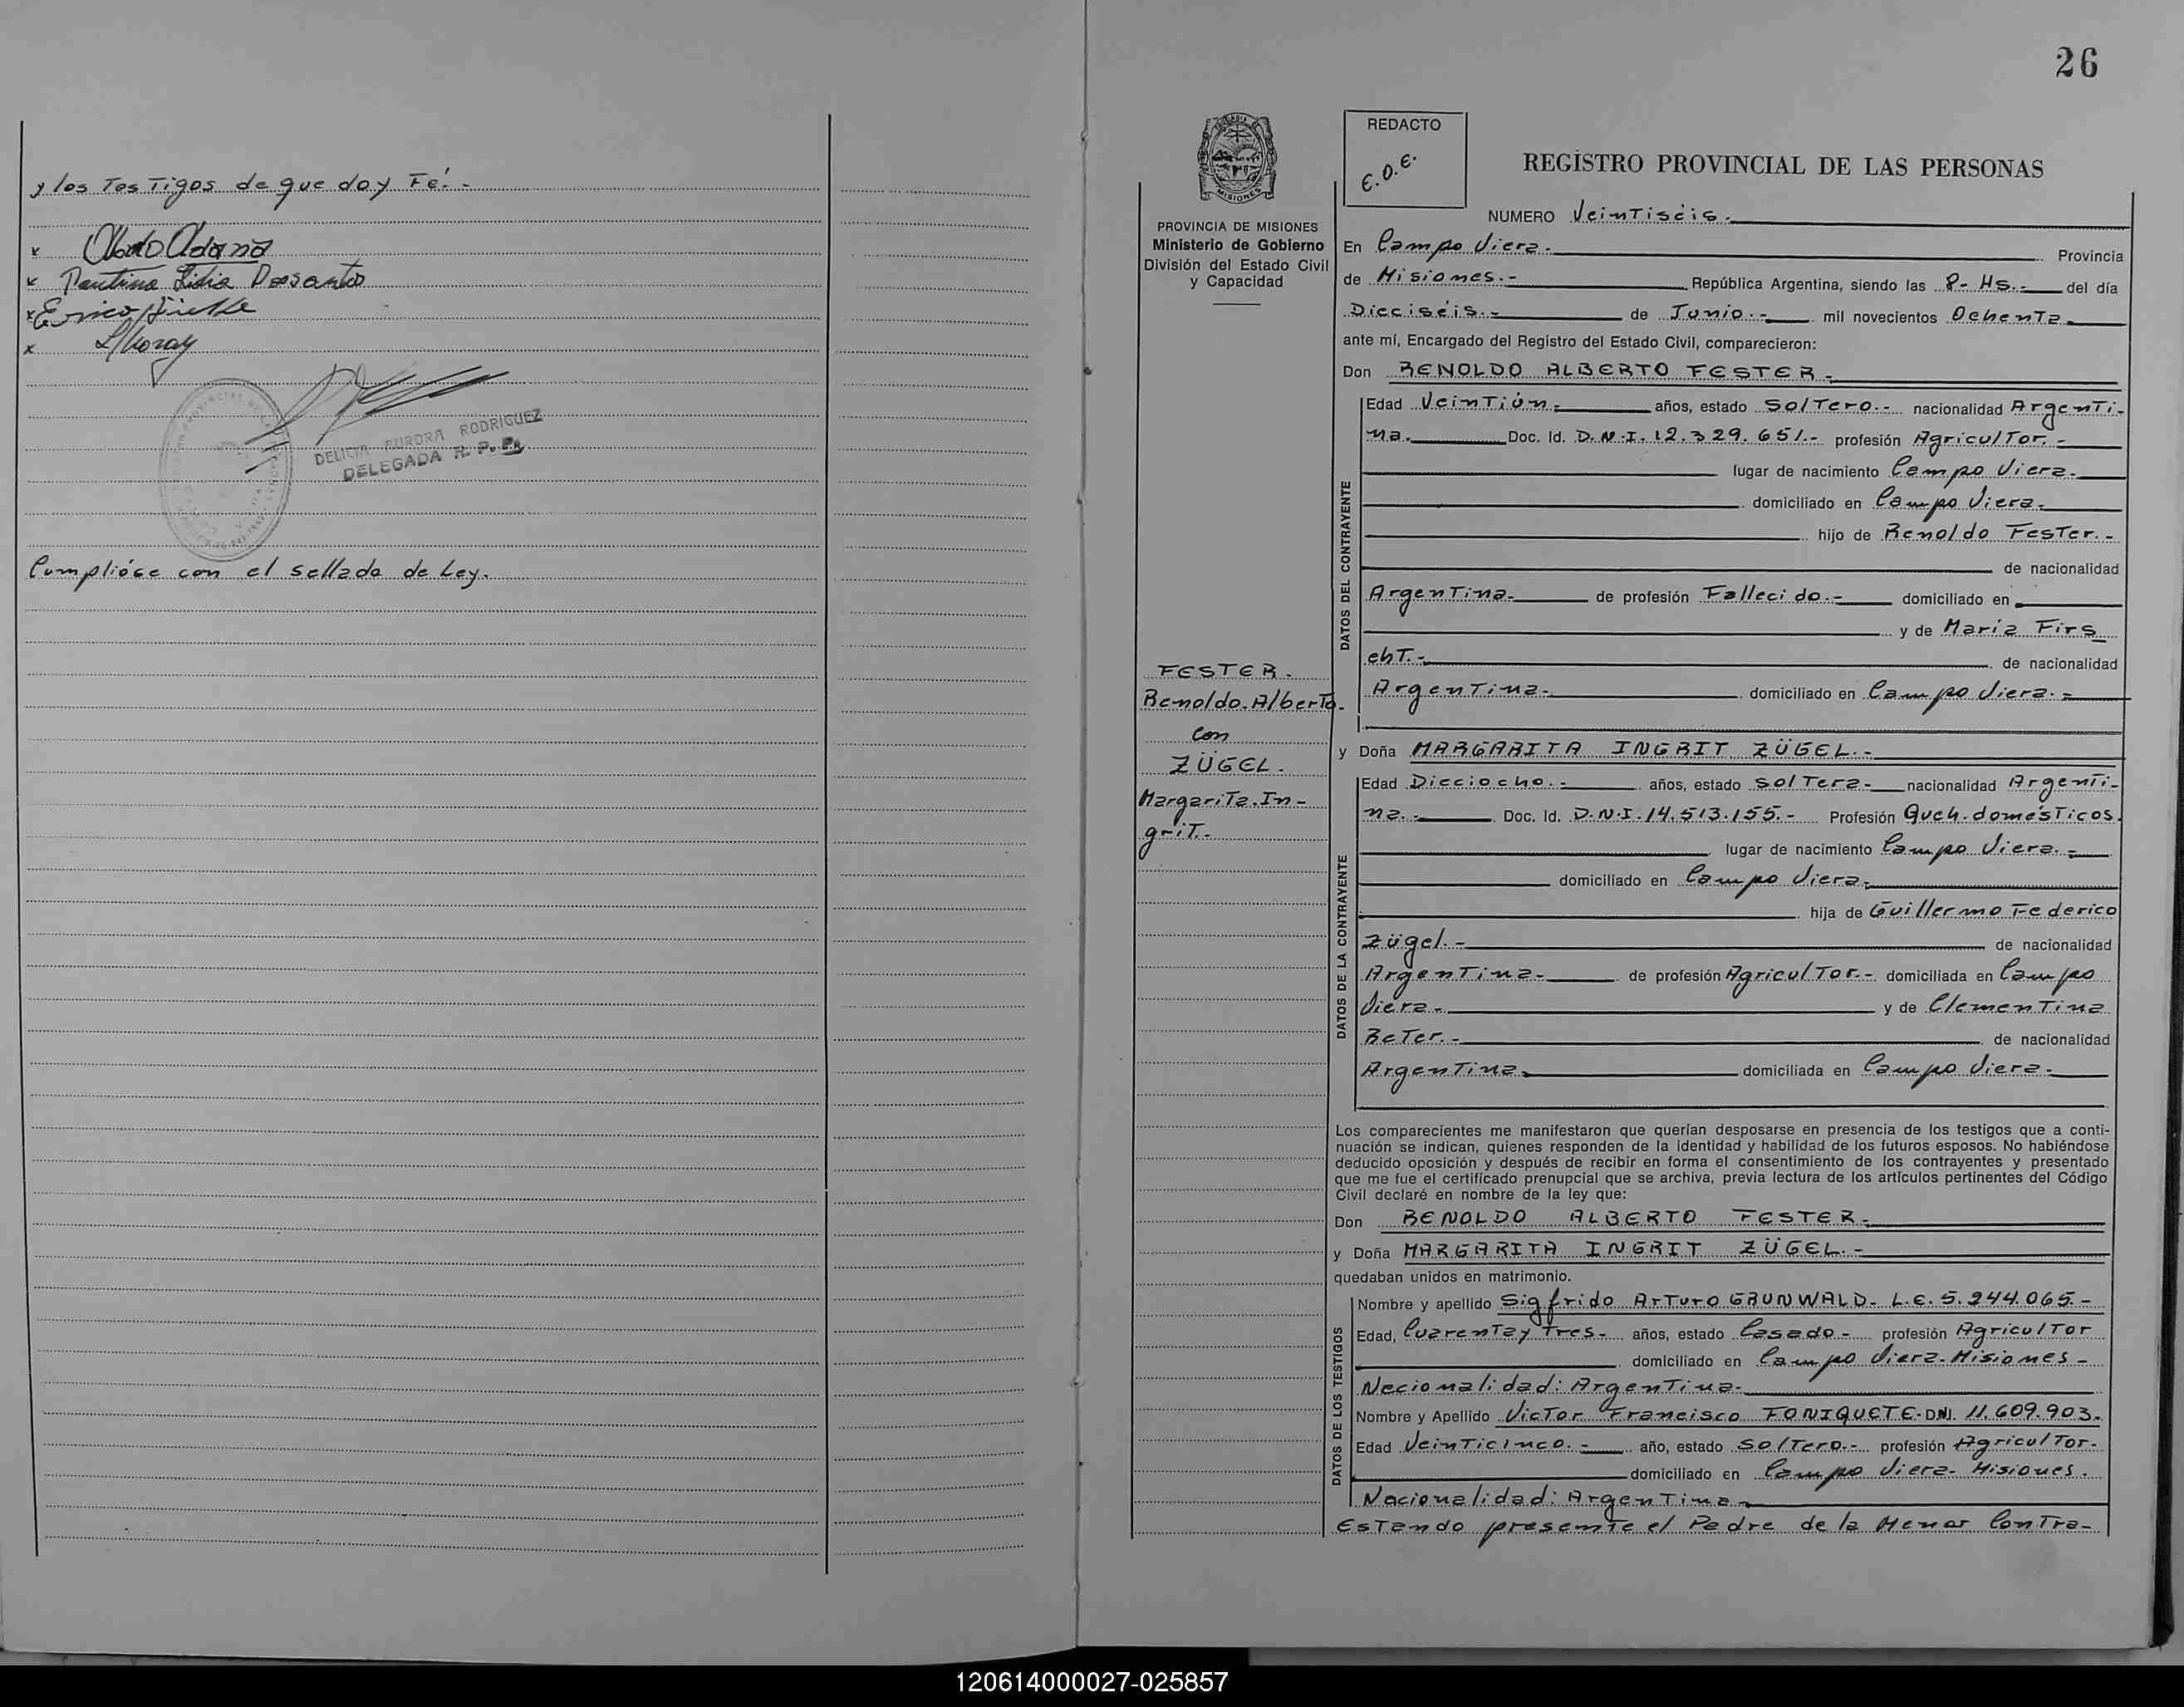 y los Testigos de que doy Fé.-
x Abdo Adano
x Paulina Lidia Dosantos
x Erico
x
DELICIA AURORA RODRIGUEZ
DELEGADA R. P. P.
Cumplióse con el sellado de Ley.
26
PROVINCIA DE MISIONES
Ministerio de Gobierno
División del Estado Civil
y Capacidad
FESTER.
Renoldo Alberto.
con
ZÜGEL.
Margarita In-
grit.-
REDACTO
E.O.E.
REGISTRO PROVINCIAL DE LAS PERSONAS
NUMERO Veintiséis.-
En Campo Viera.- Provincia
de Misiones.- República Argentina, siendo las 8- Hs.- del día
Dieciséis.- de Junio.- mil novecientos Ochenta-
ante mí, Encargado del Registro del Estado Civil, comparecieron:
Don RENOLDO ALBERTO FESTER.-
DATOS DEL CONTRAYENTE
Edad Veintiún.- años, estado Soltero.- nacionalidad Argenti-
na.- Doc. Id. D.N.I. 12.329.651.- profesión Agricultor.-
lugar de nacimiento Campo Viera.-
domiciliado en Campo Viera.-
hijo de Renoldo Fester.-
de nacionalidad
Argentina- de profesión Fallecido.- domiciliado en
y de María Firs_
cht.- de nacionalidad
Argentina.- domiciliado en Campo Viera.-
y Doña MARGARITA INGRIT ZÜGEL.-
DATOS DE LA CONTRAYENTE
Edad Dieciocho.- años, estado Soltera- nacionalidad Argenti-
na.- Doc. Id. D.N.I. 14.513.155.- Profesión Queh. domésticos.
lugar de nacimiento Campo Viera.-
domiciliado en Campo Viera-
hija de Guillermo Federico
Zügel.- de nacionalidad
Argentina- de profesión Agricultor.- domiciliada en Campo
Viera- y de Clementina
Reter.- de nacionalidad
Argentina- domiciliada en Campo Viera.-
Los comparecientes me manifestaron que querían desposarse en presencia de los testigos que a conti-
nuación se indican, quienes responden de la identidad y habilidad de los futuros esposos. No habiéndose
deducido oposición y después de recibir en forma el consentimiento de los contrayentes y presentado
que me fue el certificado prenupcial que se archiva, previa lectura de los artículos pertinentes del Código
Civil declaré en nombre de la ley que:
Don RENOLDO ALBERTO FESTER.-
y Doña MARGARITA INGRIT ZÜGEL.-
quedaban unidos en matrimonio.
DATOS DE LOS TESTIGOS
Nombre y apellido Sigfrido Arturo GRUNWALD- L.E. 5.244.065.-
Edad, Cuarenta y Tres- años, estado Casado- profesión Agricultor
domiciliado en Campo Viera-Misiones-
Nacionalidad: Argentina-
Nombre y Apellido Victor Francisco FONIQUETE- DNI. 11.609.903-
Edad Veinticinco.- año, estado Soltero.- profesión Agricultor-
domiciliado en Campo Viera- Misiones.
Nacionalidad: Argentina-
Estando presente el Padre de la Menor Contra-
120614000027-025857